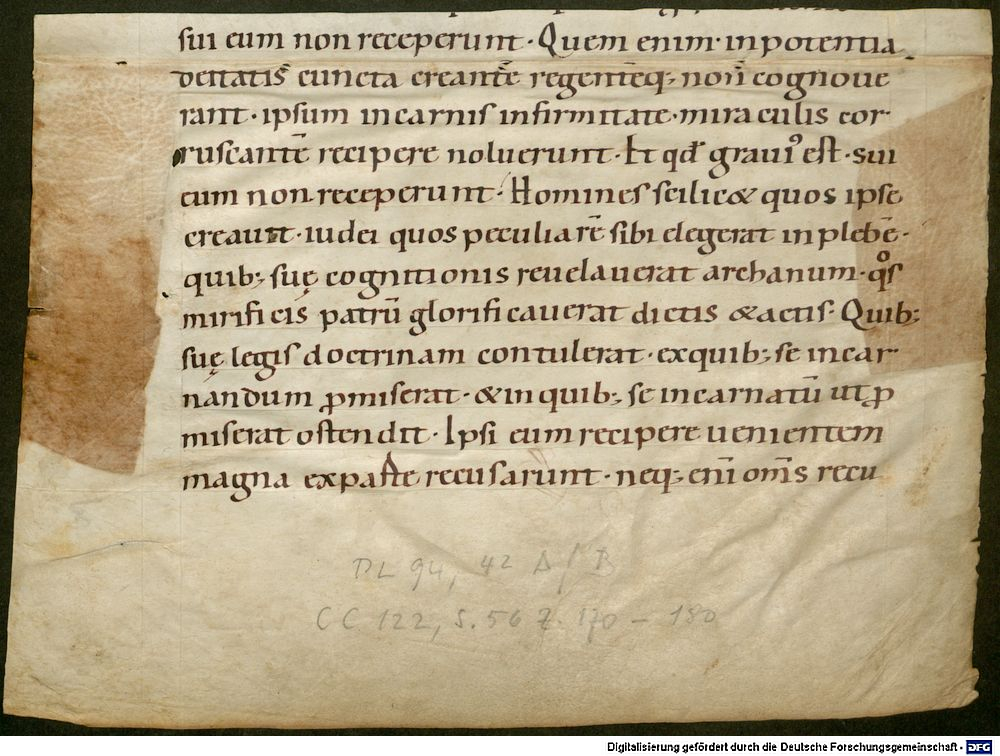 sui eum non receperunt · Quem enim · in potentia
deitatis cuncta creantē regentēq; non cognoue
rant · ipsum in carnis infirmitate · miraculis cor
ruscantē recipere noluerunt · Et qđ grauiꝰ est · sui
eum non receperunt · Homines scilic& quos ipse
creauit · iudei quos peculiarē sibi elegerat in plebē ·
quib; suę cognitionis reuelauerat archanum · qͦs
mirificis patrū glorificauerat dictis & actis · Quib;
suę legis doctrinam contulerat · ex quib; se incar
nandum ꝓmiserat · & in quib; se incarnatū ut ꝓ
miserat ostendit · Ipsi eum recipere uenientem
magna ex parte recusarunt · neq; enī om̄s recu
PL 94, 42 A/B
CC 122, S. 56 Z. 170 – 180
Digitalisierung gefördert durch die Deutsche Forschungsgemeinschaft - DFG